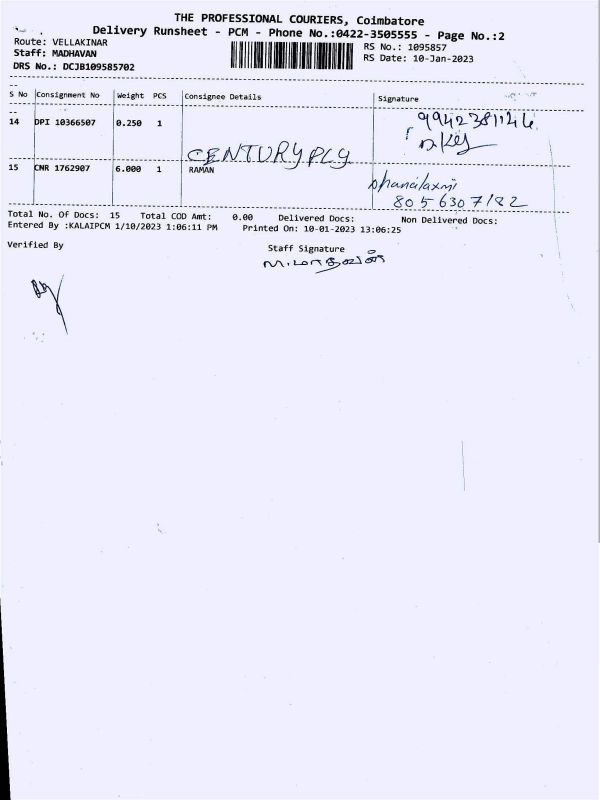 THE PROFESSIONAL COURIERS, Coimbatore
Delivery Runsheet - PCM - Phone No.:0422-3505555 - Page No.:2
Route: VELLAKINAR
RS No.: 1095857
Staff: MADHAVAN
RS Date: 10-Jan-2023
DRS No.: DCJB109585702
S No Consignment No Weight PCS Consignee Details Signature
14 DPI 10366507 0.250 1 CENTURYPLY
15 CNR 1762907 6.000 1 RAMAN
Dhanalaxmi
8056307182
Total No. Of Docs: 15 Total COD Amt: 0.00 Delivered Docs: Non Delivered Docs:
Entered By :KALAIPCM 1/10/2023 1:06:11 PM Printed On: 10-01-2023 13:06:25
Verified By
Staff Signature
ம.மாதவன்